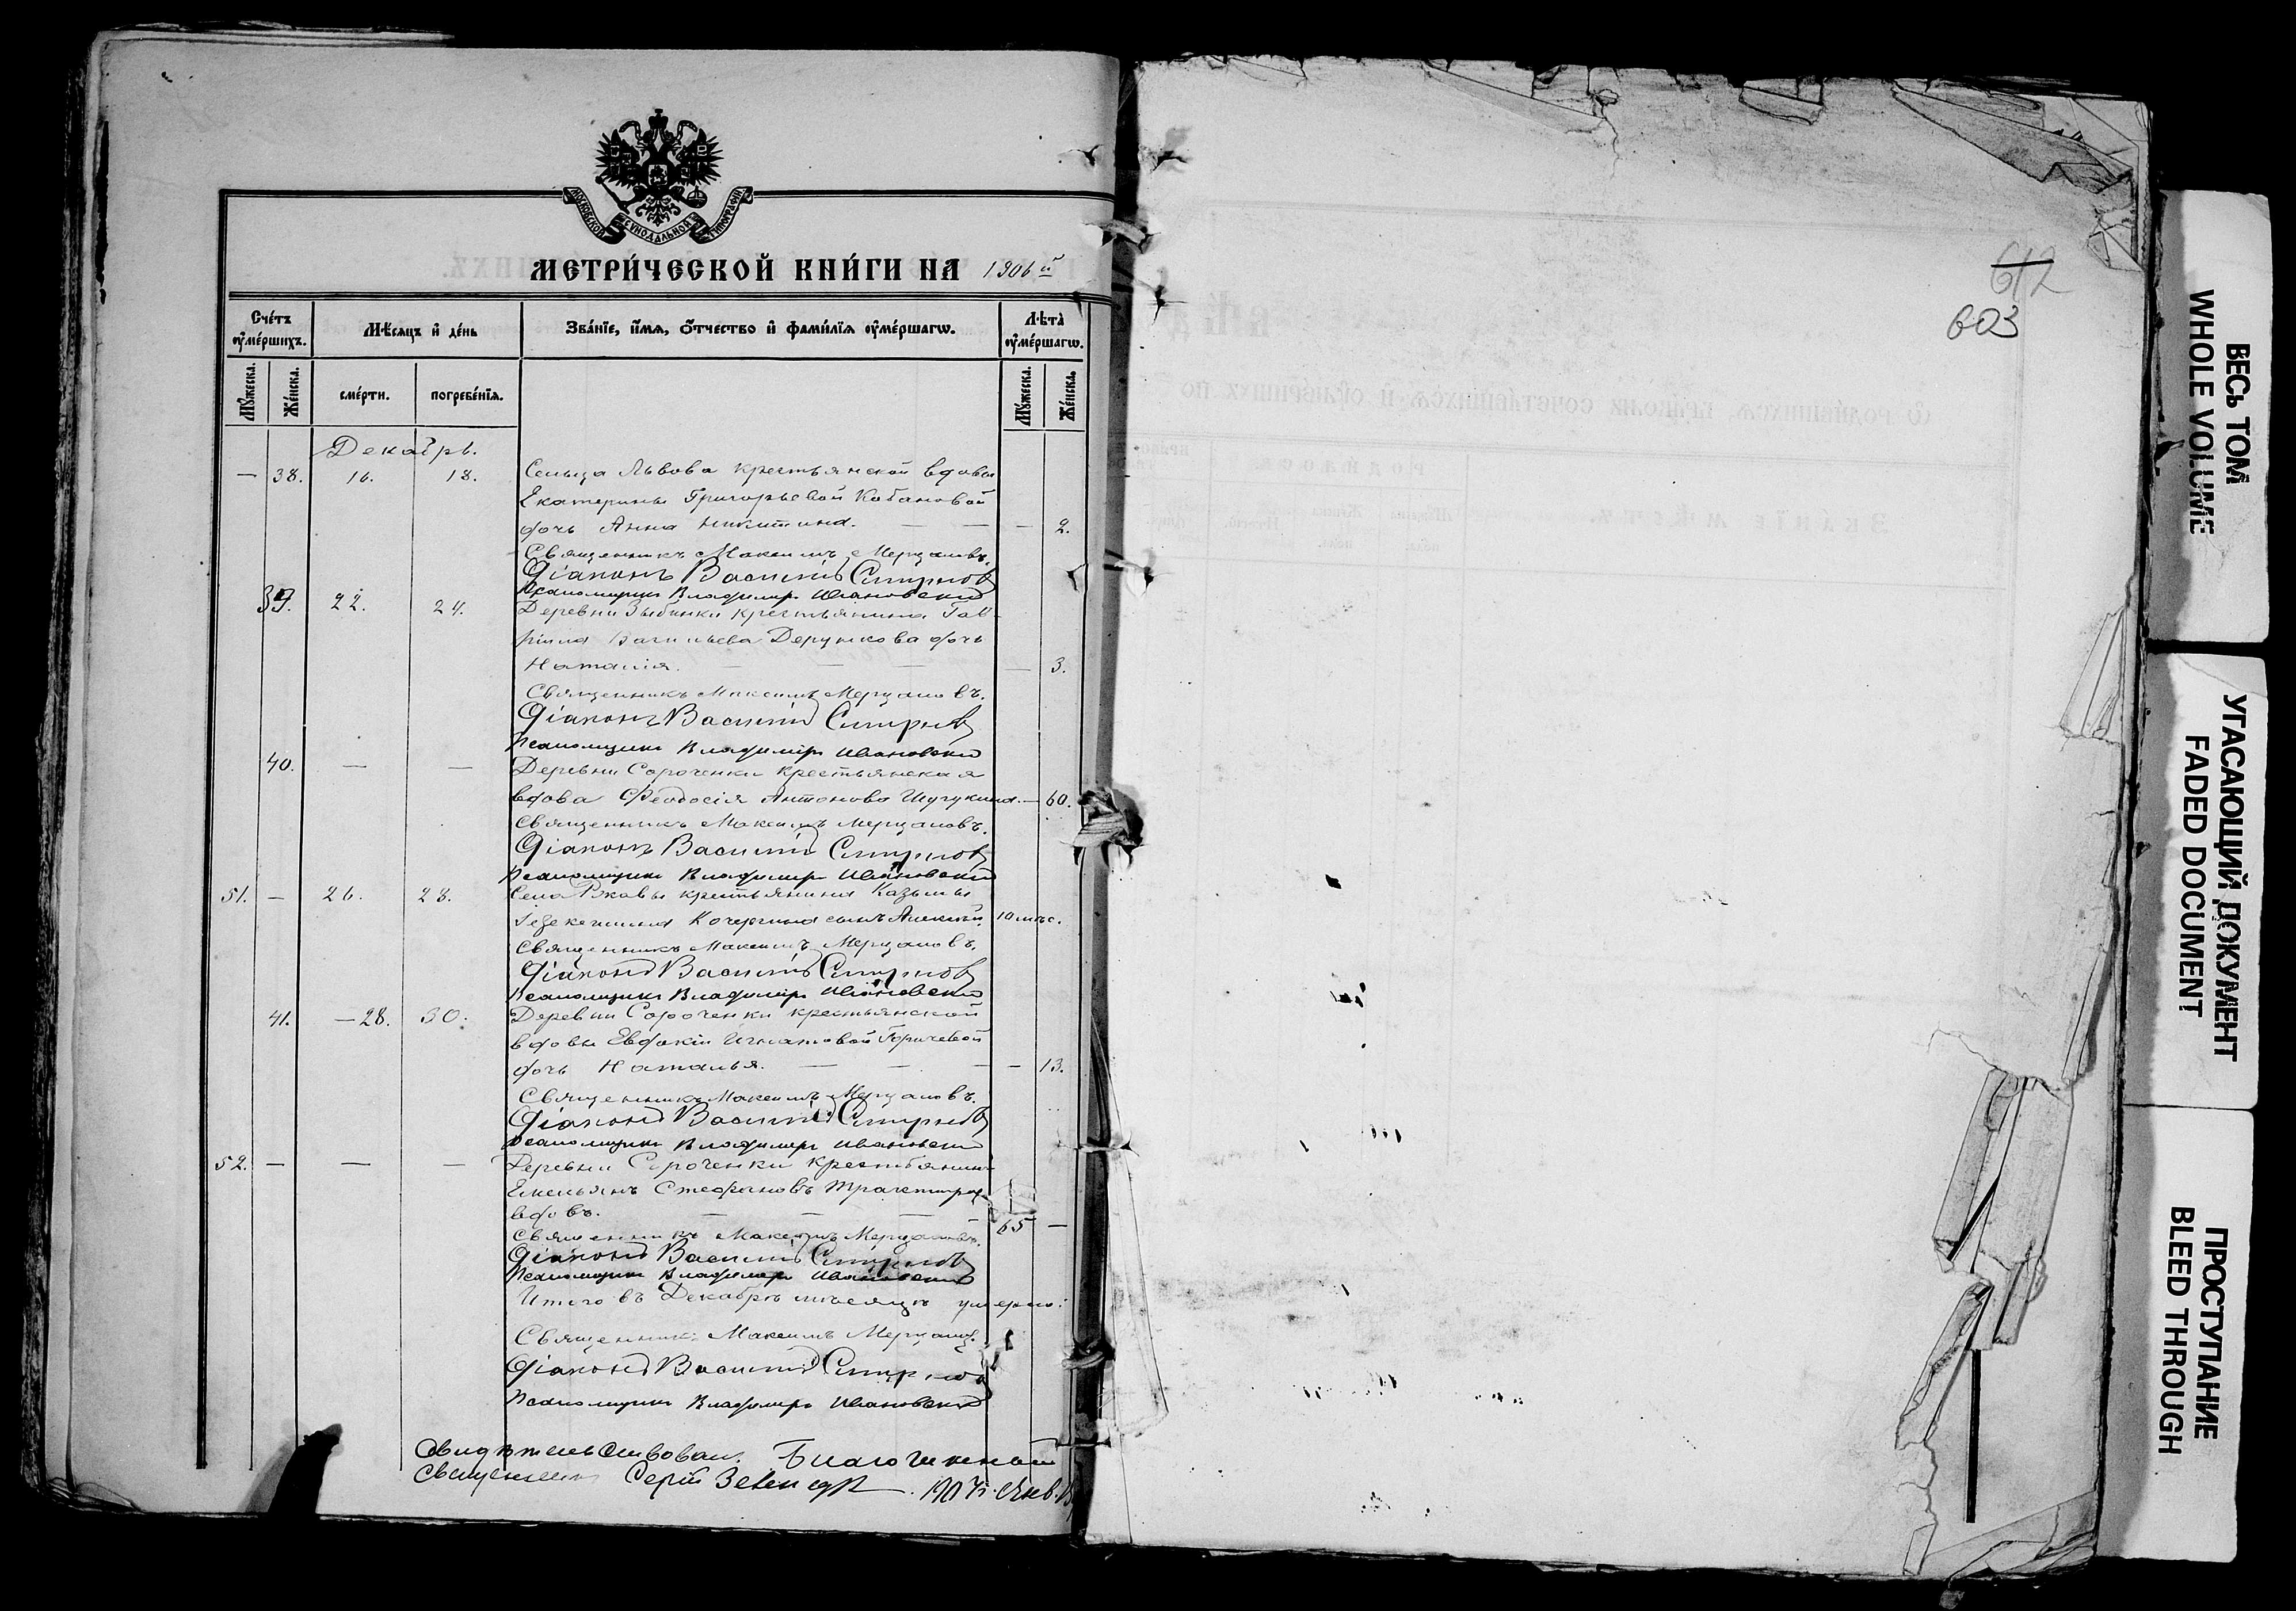 МОСКОВСКОЙ СѴНОДАЛЬНОЙ ТИПОГРАФІИ
МЕТРИ́ЧЕСКОЙ КНИ́ГИ НА 1906 й
Сче́тъ ᲂу҆ме́ршихъ.
Мѣ́сяцъ и҆ де́нь
Зва́нїе, и҆́мѧ, ѻ҆́тчество и҆ фами́лїѧ ᲂу҆ме́ршагѡ.
Лѣ́та ᲂу҆ме́ршагѡ.
Мꙋ́жеска.
Же́нска.
сме́рти.
погребе́нїѧ.
Мꙋ́жеска.
Же́нска.
Декабрь.
— 38. 16. 18. Сельца Львова крестьянской вдовы
Екатерины Григорьевой Кабановой
дочь Анна Никитина. — — — 2.
Священникъ Максимъ Мерцаловъ.
Діаконъ Василій Смирновъ
Псаломщикъ Владимиръ Ивановскій
39. 22. 24. Деревни Зыбинки крестьянина Гав-
ріила Васильева дочь
Наталія. — — — — 3.
Священникъ Максимъ Мерцаловъ.
Діаконъ Василій Смирновъ
Псаломщикъ Владимиръ Ивановскій
40. — — Деревни Сороченки крестьянская
вдова Феодосія Антонова Шугукина. — 60.
Священникъ Максимъ Мерцаловъ.
Діаконъ Василій Смирновъ
Псаломщикъ Владимиръ Ивановскій
51. — 26. 28. Села Ржавы крестьянина Казьмы
Іезекіилина Кочергина сынъ Алексѣй. 10 мѣс.
Священникъ Максимъ Мерцаловъ.
Діаконъ Василій Смирновъ
Псаломщикъ Владимиръ Ивановскій
41. — 28. 30. Деревни Сороченки крестьянской
вдовы Евдокіи Игнатовой Горичевой
дочь Наталья. — — — — 13.
Священникъ Максимъ Мерцаловъ.
Діаконъ Василій Смирновъ
Псаломщикъ Владимиръ Ивановскій
52. — — — Деревни Сороченки крестьянинъ
Емельянъ Стефановъ
вдовъ. — — — 65 —
Священникъ Максимъ Мерцаловъ.
Діаконъ Василій Смирновъ
Псаломщикъ Владимиръ Ивановскій
Итого въ Декабрѣ мѣсяцѣ умерло:
Священникъ Максимъ Мерцаловъ.
Діаконъ Василій Смирновъ
Псаломщикъ Владимиръ Ивановскій
Свидѣтельствовалъ Благочинный
Священникъ Сергій 1907 г. Янв.
612
603
ВЕСЬ ТОМ
WHOLE VOLUME
УГАСАЮЩИЙ ДОКУМЕНТ
FADED DOCUMENT
ПРОСТУПАНИЕ
BLEED THROUGH